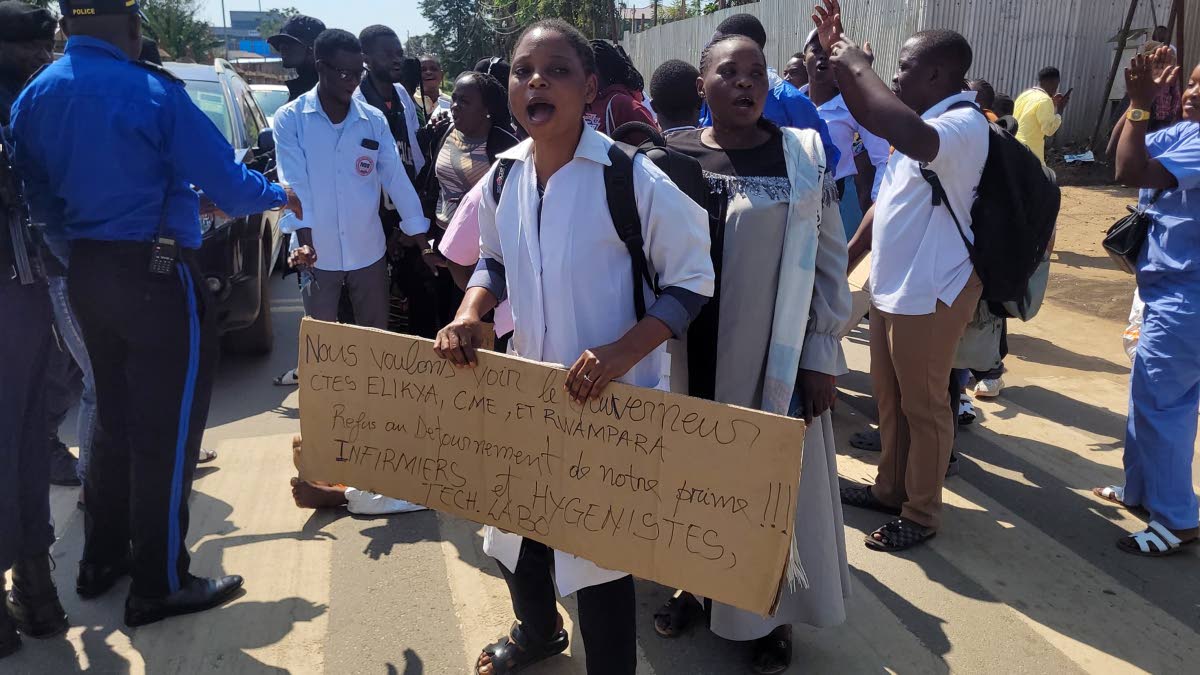 POLICE
Nous voulons voir le Gouverneur
CTES ELIKYA, CME, ET RWAMPARA
Refus au Detournement de notre prime !!!
INFIRMIERS et HYGENISTES,
TECH. LABO